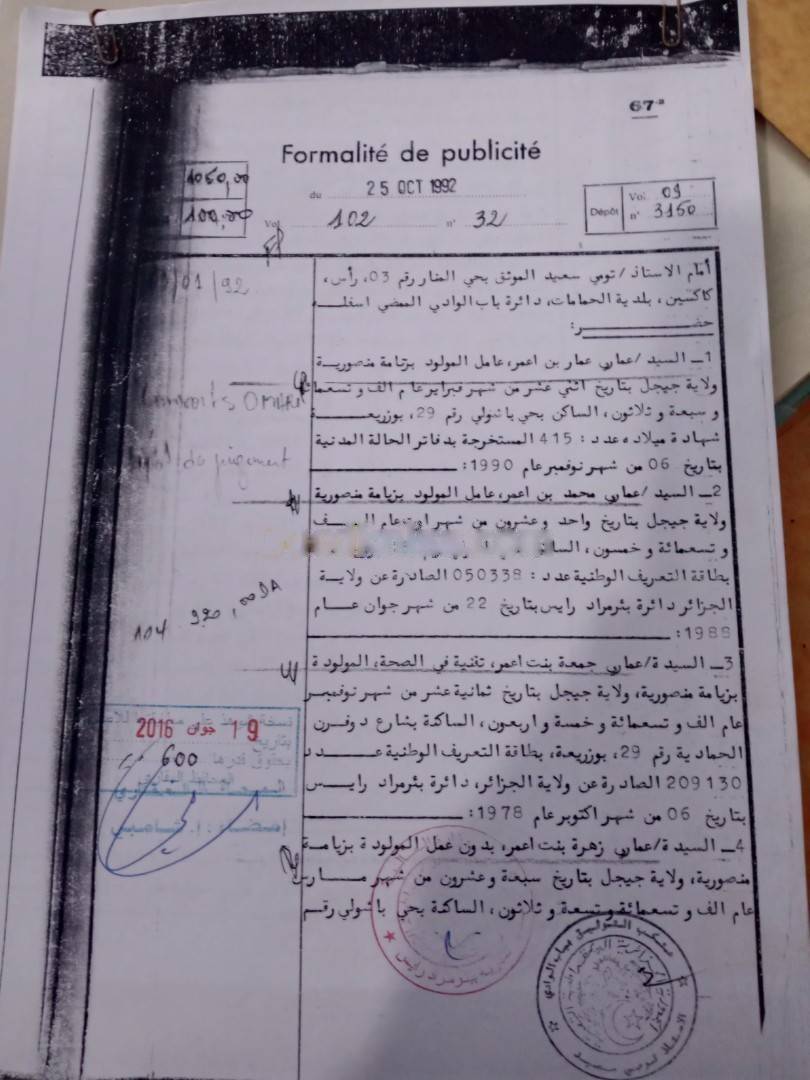 67-ª
Formalité de publicité
1050,00
100,00
du 25 OCT 1992
Vol 102 n° 32
Dépôt Vol 09 n° 3150
01/92
أمام الاستاذ / تومي سعيد الموثق بحي المنار رقم 03، رأس،
كاكسين، بلدية الحمامات، دائرة باب الوادي الممضي اسفلـــه
حضـــــــــر:
1ـ السيد /عماري عمار بن اعمر، عامل المولود بزيامة منصورية
ولاية جيجل بتاريخ اثني عشر من شهر فبراير عام الف و تسعمائة
و سبعة و ثلاثون، الساكن بحي باشولي رقم 29، بوزريعـــــــة
شهادة ميلاده عدد: 415 المستخرجة بدفاتر الحالة المدنية
بتاريخ 06 من شهر نوفمبر عام 1990:
2ـ السيد /عماري محمد بن اعمر، عامل المولود بزيامة منصورية
ولاية جيجل بتاريخ واحد وعشرون من شهر اوت عام الـــــف
و تسعمائة و خمسون،
بطاقة التعريف الوطنية عدد: 050338 الصادرة عن ولايـــة
الجزائر دائرة بئرمراد رايس بتاريخ 22 من شهر جوان عـــام
1988:
3ـ السيدة/عماري جمعة بنت اعمر، تقنية في الصحة، المولودة
بزيامة منصورية، ولاية جيجل بتاريخ ثمانية عشر من شهر نوفمبـر
عام الف و تسعمائة و خمسة و اربعون، الساكنة بشارع دوفرن
الحمادية رقم 29، بوزريعة، بطاقة التعريف الوطنية عـــــدد
209130 الصادرة عن ولاية الجزائر، دائرة بئرمراد رايـــس
بتاريخ 06 من شهر اكتوبر عام 1978:
4ـ السيدة/عماري زهرة بنت اعمر، بدون عمل المولودة بزيامـة
منصورية، ولاية جيجل بتاريخ سبعة وعشرون من شهر مـــارس
عام الف و تسعمائة و تسعة و ثلاثون، الساكنة بحي باشولي رقم
du jugement
104 920,00DA
19 جوان 2016
600
مكتب التوثيق بباب الوادي